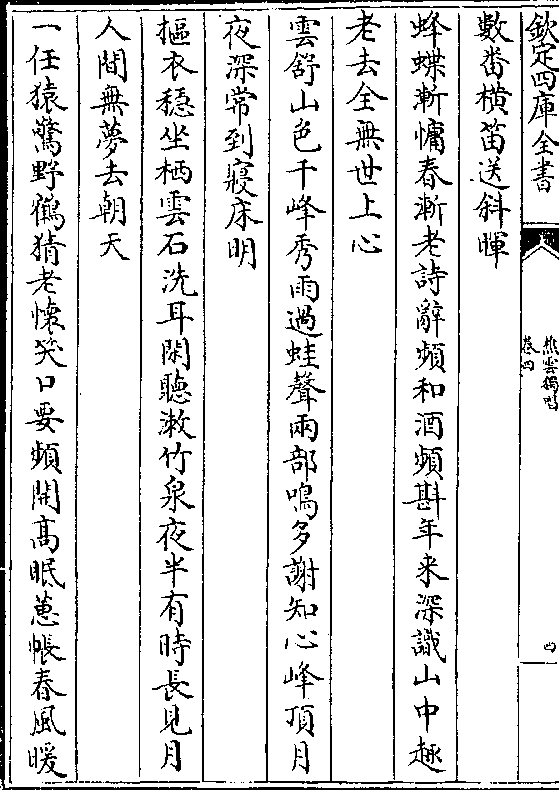 欽定四庫全書
樵雲獨唱
卷四
四
數畨横笛送斜暉
蜂蝶漸慵春漸老詩辭頻和酒頻斟年来深識山中趣
老去全無世上心
雲舒山色千峰秀雨過蛙聲兩部鳴多謝知心峰頂月
夜深常到寢床明
摳衣穏坐栖雲石洗耳閑聽漱竹泉夜半有時長見月
人間無夢去朝天
一任猿驚野鶴猜老懷笑口要頻開髙眠蕙帳春風暖